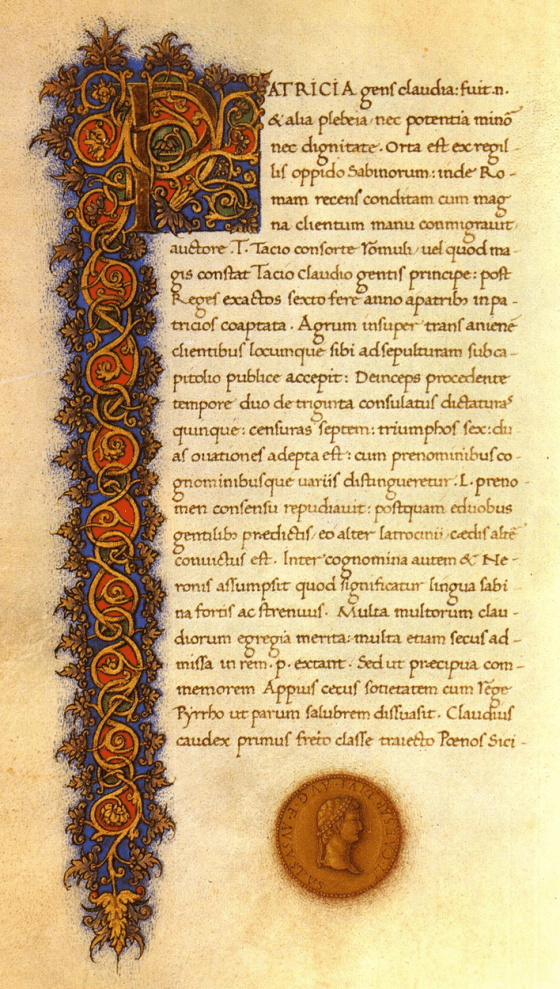 PATRICIA gens claudia: fuit.n.
& alia plebeia nec potentia minō
nec dignitate. Orta est ex regil-
lis oppido Sabinorum: inde Ro-
mam recens conditam cum mag
na clientum manu conmigrauit/
auctore .T. Tacio consorte rōmuli/ uel quod ma-
gis constat Tacio Claudio gentis principe: post
Reges exactos sexto fere anno apatribꝰ in pa-
tricios coaptata. Agrum insuper trans anienē
clientibus locumque sibi ad sepulturam sub ca-
pitolio publice accepit: Deinceps procedente
tempore duo de triginta consulatus dictaturas
quinque: censuras septem: triumphos sex: du
as ouationes adepta est: cum prenominibus co-
gnominibusque variis distingueretur. L. preno-
men consensu repudiauit: postquam e duobus
gentilibꝰ prædictis/ eo alter latrocinii/ cædis altē
conuictus est. Inter cognomina autem & Ne-
ronis assumpsit quod significatur lingua sabi
na fortis ac strenuus. Multa multorum clau-
diorum egregia merita: multa etiam secus ad-
missa in rem. p. extant. Sed ut præcipua com-
memorem Appius cecus societatem cum rēge
Pyrrho ut parum salubrem dissuasit. Claudius
caudex primus freto classe traiecto Pœnos Sici-